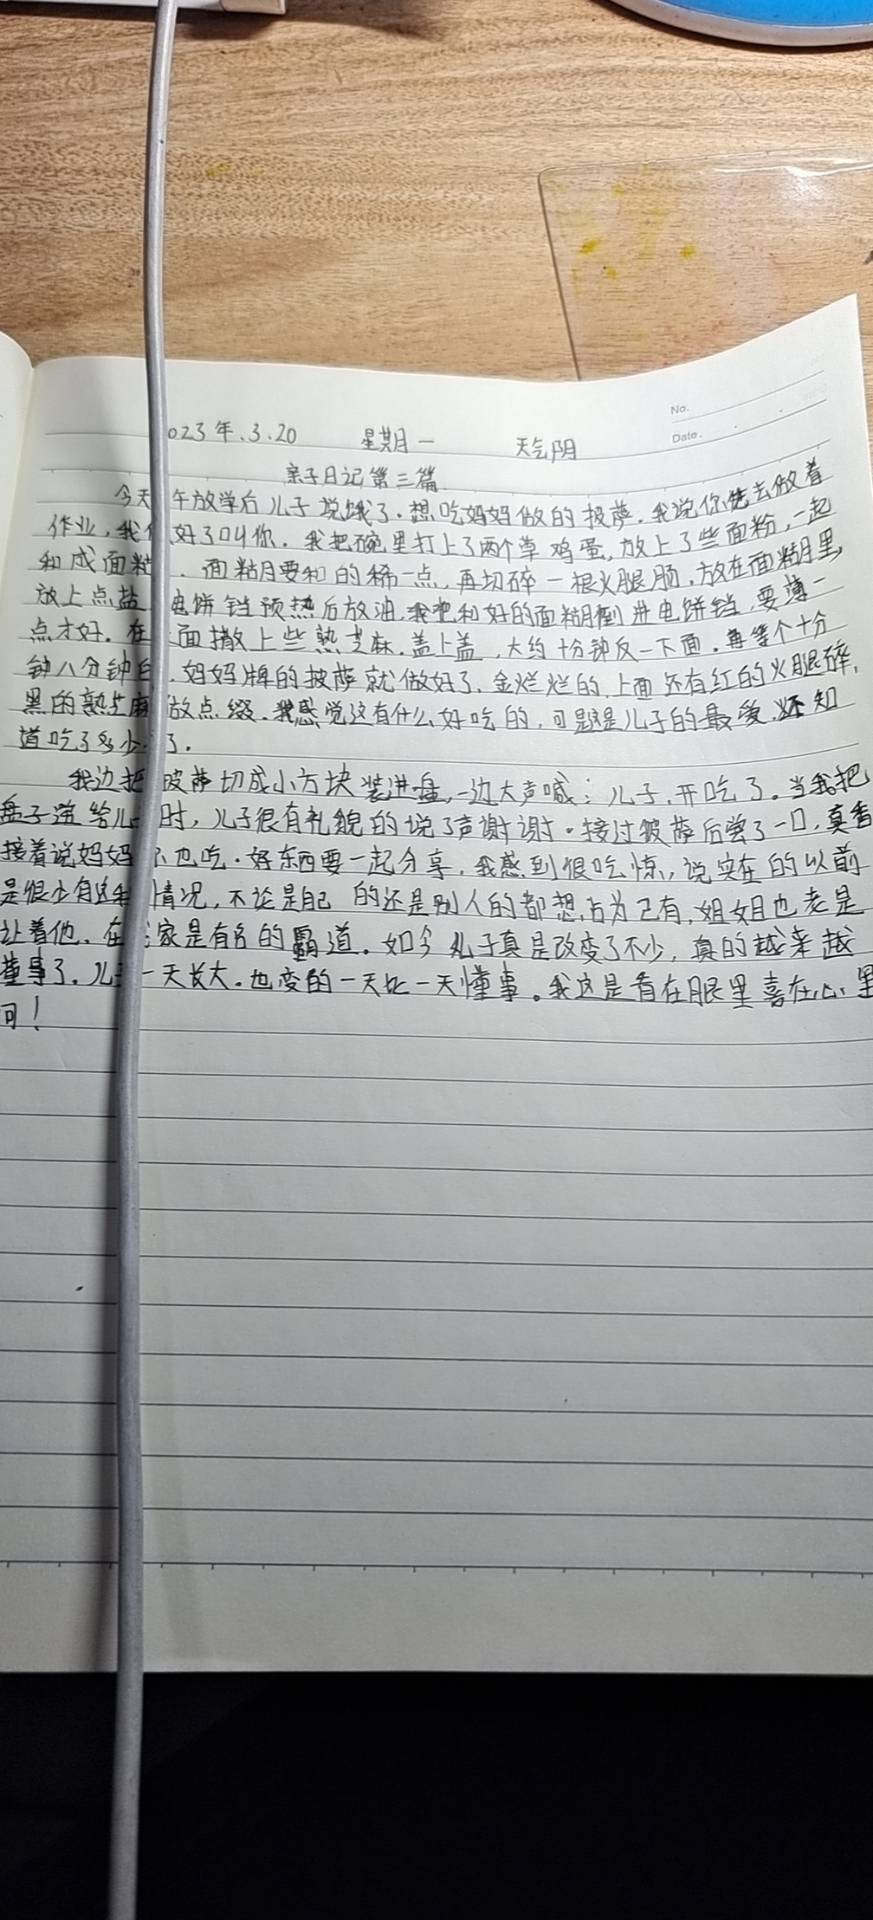 No.
Date.
023年.3.20 星期一 天气阴
亲子日记第三篇
今天 午放学后儿子说饿了.想吃妈妈做的披萨.我说你先去做着
作业,我 好了叫你.我把碗里打上了两个草鸡蛋,放上了些面粉,一起
和成面糊.面糊要和的稀一点,再切碎一根火腿肠,放在面糊里,
放上点盐 电饼铛预热后放油,我把和好的面糊倒进电饼铛,要薄一
点才好.在 面撒上些熟芝麻.盖上盖,大约十分钟反一下面.再等个十分
钟八分钟 .妈妈牌的披萨就做好了.金烂烂的,上面还有红的火腿碎,
黑的熟芝麻做点缀.我感觉这有什么好吃的,可是这是儿子的最爱.不知
道吃了多少 了.
我边把 披萨切成小方块装进盘,一边大声喊:儿子,开吃了.当我把
盘子递给儿 时,儿子很有礼貌的说了声谢谢.接过披萨后尝了一口,真香
接着说妈妈 也吃.好东西要一起分享,我感到很吃惊,说实在的以前
是很少有这种情况,不论是自己 的还是别人的都想占为己有,姐姐也老是
让着他.在 家是有名的霸道.如今儿子真是改变了不少,真的越来越
懂事了.儿 一天长大.也变的一天比一天懂事。我这是看在眼里喜在心里
呵!